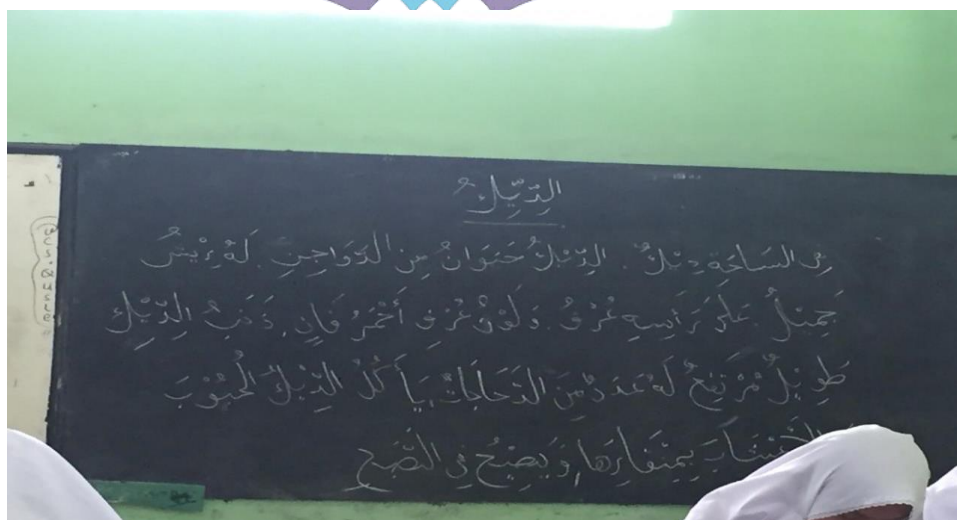 الدِّيْكُ
فِى السَّاحَةِ دِيْكٌ. الدِّيْكُ حَيَوَانٌ مِنَ الدَّوَاجِنِ. لَهُ رِيْشٌ
جَمِيْلٌ. عَلَى رَأْسِهِ عُرْفٌ. وَلَوْنُ عُرْفِهِ أَحْمَرُ قَانٍ. ذَنَبُ الدِّيْكِ
طَوِيْلٌ مُرْتَفِعٌ لَهُ عَدَدٌ مِنَ الدَّجَاجَاتِ. يَأْكُلُ الدِّيْكُ الْحُبُوْبَ
الْأَعْشَابَ بِمِنْقَارِهَا، وَيَصِيْحُ فِى الصُّبْحِ